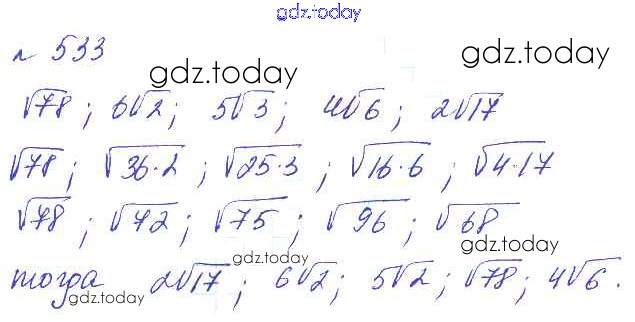 gdz.today
№ 533
gdz.today
gdz.today
√78 ; 6√2 ; 5√3 ; 4√6 ; 2√17
√78 ; √36·2 ; √25·3 ; √16·6 ; √4·17
√78 ; √72 ; √75 ; √96 ; √68
gdz.today
gdz.today
тогда 2√17 ; 6√2 ; 5√2 ; √78 ; 4√6 .
gdz.today